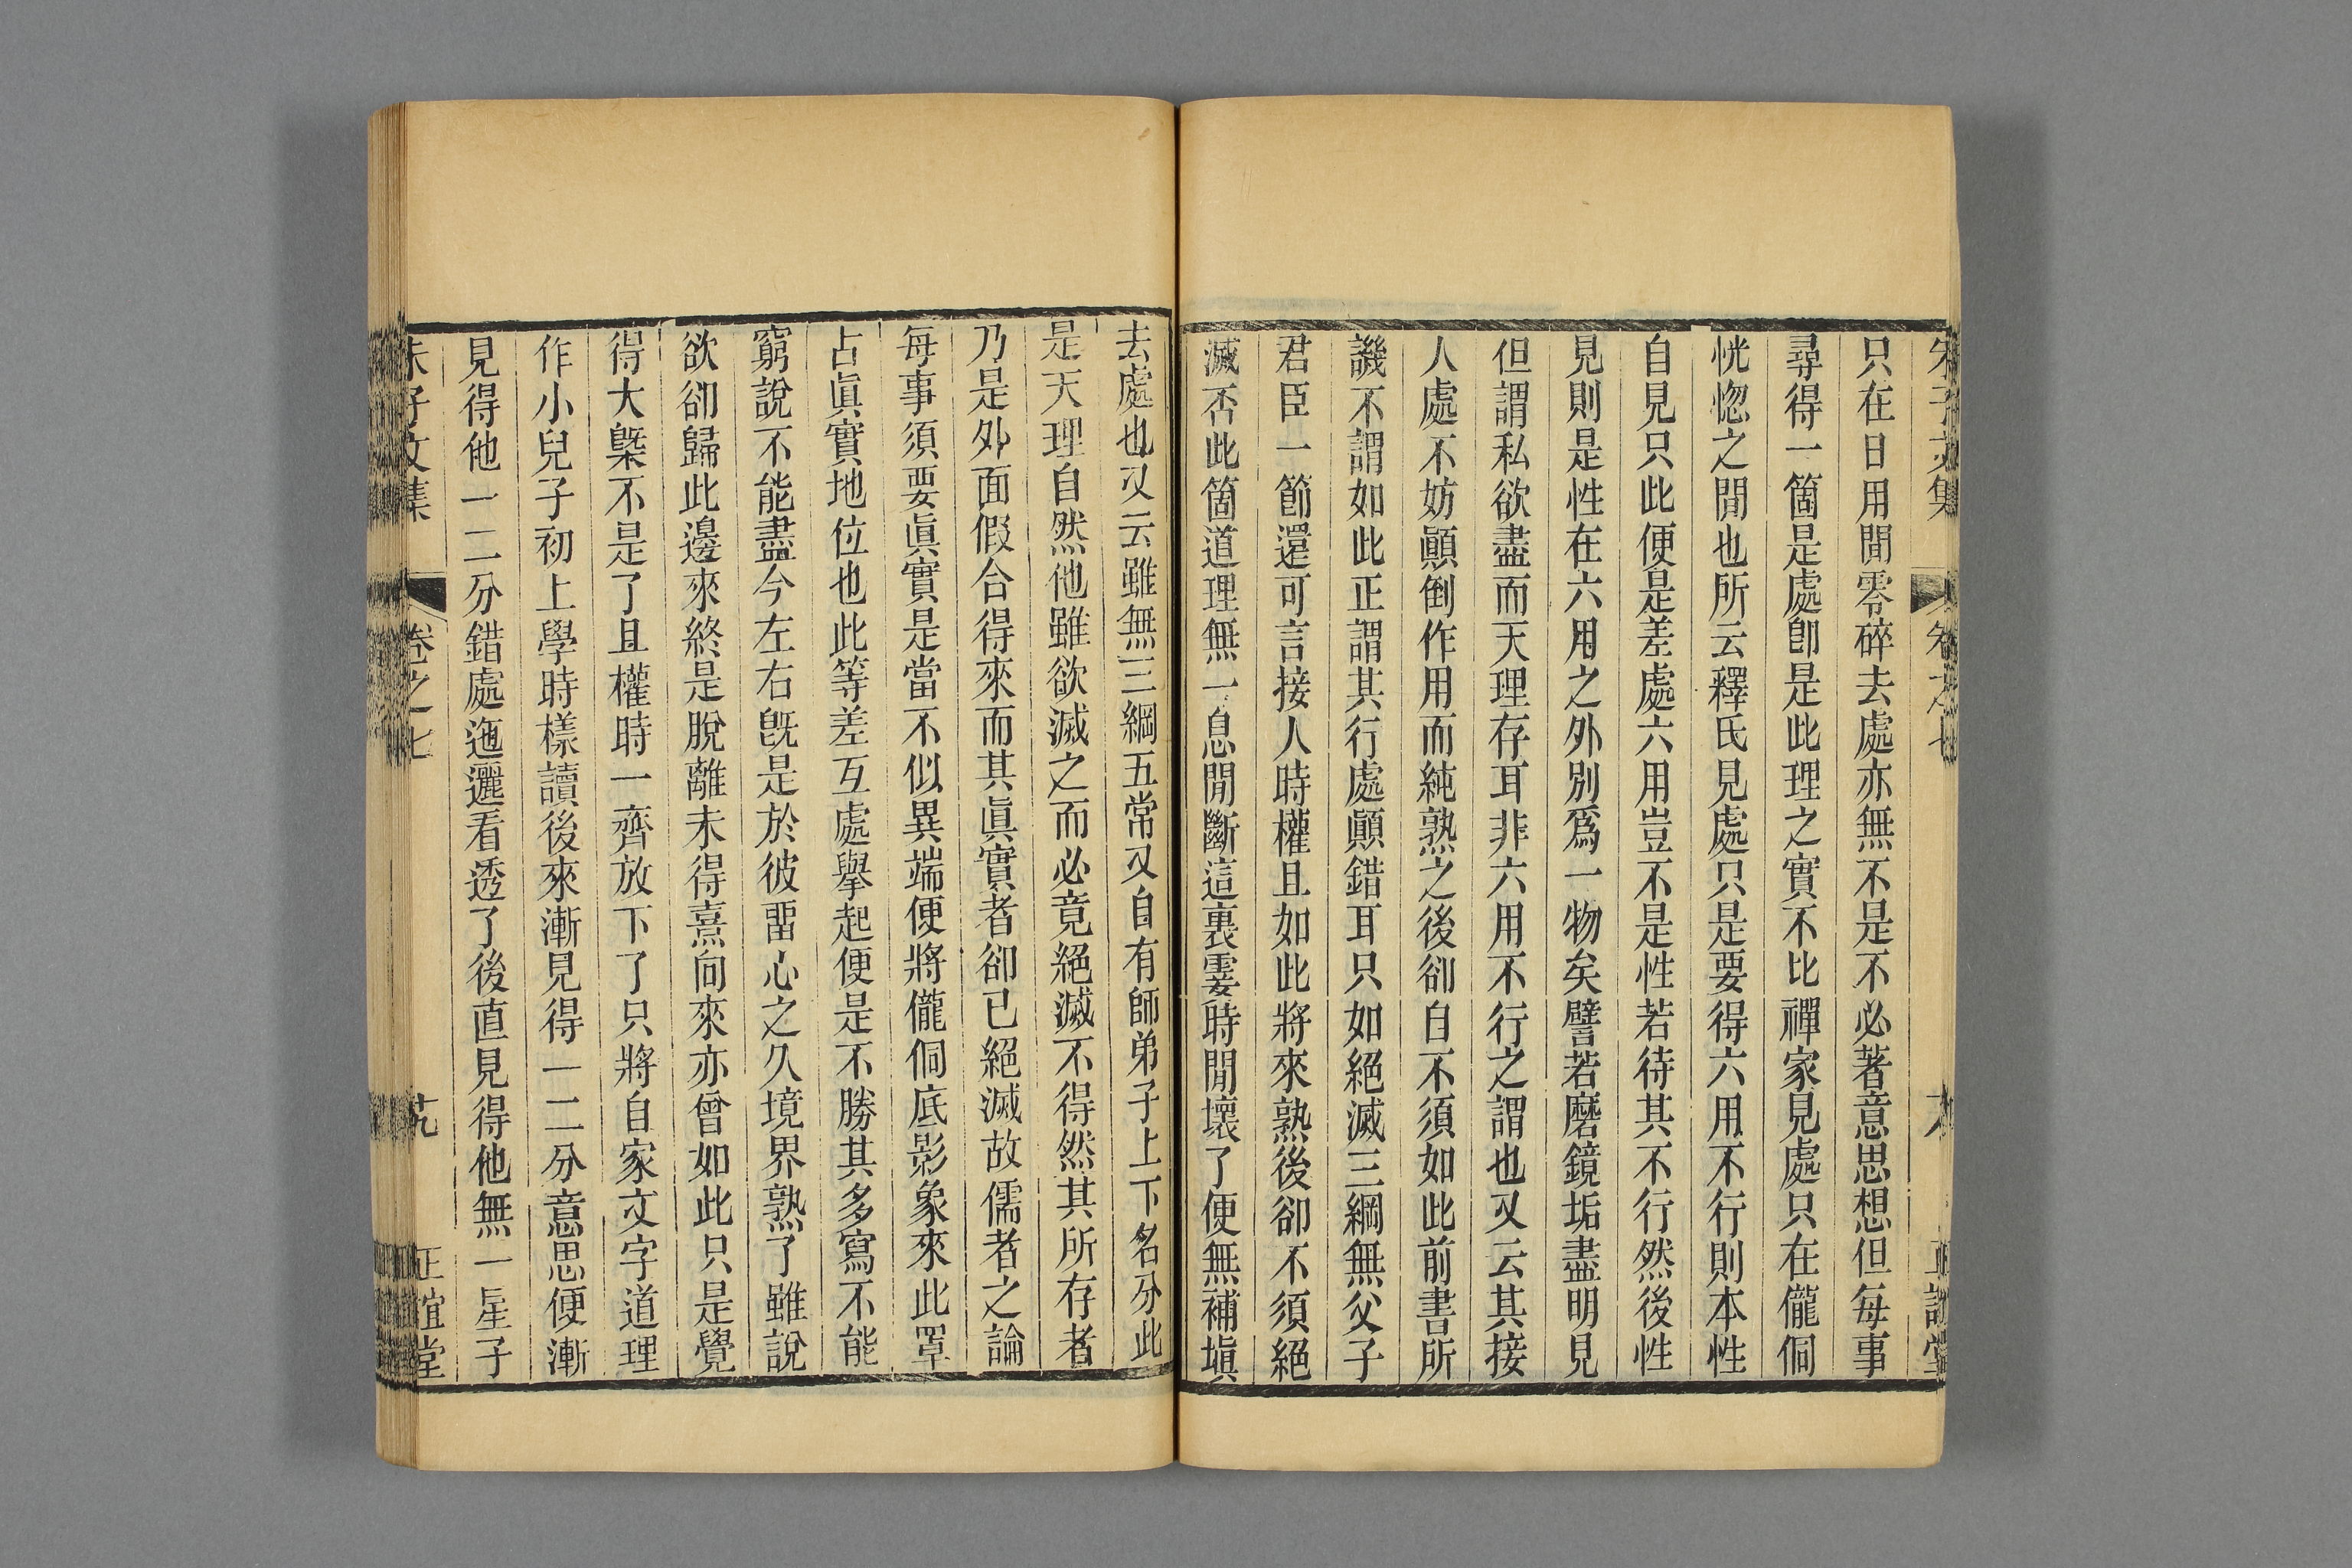 只在日用閒零碎去處亦無不是不必著意思想但每事
尋得一箇是處卽是此理之實不比禪家見處只在儱侗
恍惚之閒也所云釋氏見處只是要得六用不行則本性
自見只此便是差處六用豈不是性若待其不行然後性
見則是性在六用之外別爲一物矣譬若磨鏡垢盡明見
但謂私欲盡而天理存耳非六用不行之謂也又云其接
人處不妨顚倒作用而純熟之後卻自不須如此前書所
譏不謂如此正謂其行處顚錯耳只如絕滅三綱無父子
君臣一節還可言接人時權且如此將來熟後卻不須絕
滅否此箇道理無一息閒斷這裏霎時閒壞了便無補塡
去處也又云雖無三綱五常又自有師弟子上下名分此
是天理自然他雖欲滅之而必竟絕滅不得然其所存者
乃是外面假合得來而其眞實者卻已絕滅故儒者之論
每事須要眞實是當不似異端便將儱侗底影象來此罩
占眞實地位也此等差互處舉起便是不勝其多寫不能
窮說不能盡今左右旣是於彼畱心之久境界熟了雖說
欲卻歸此邊來終是脫離未得熹向來亦曾如此只是覺
得大槩不是了且權時一齊放下了只將自家文字道理
作小兒子初上學時樣讀後來漸見得一二分意思便漸
見得他一二分錯處迤邐看透了後直見得他無一星子
朱子文集 卷之七 十九 正誼堂